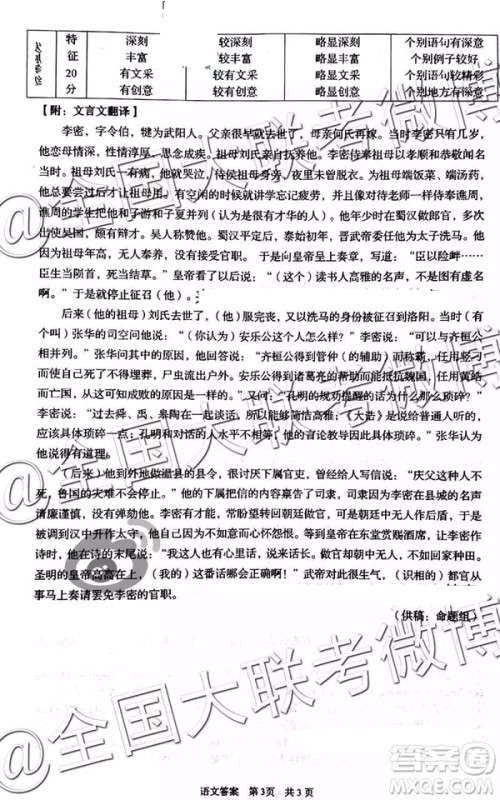 特 深刻 较深刻 略显深刻 个别语句有深意
征 丰富 较丰富 略显丰富 个别例子较好
20 有文采 较有文采 略显文采 个别语句较精彩
分 有创意 较有创意 略显创意 个别地方有深意
【附：文言文翻译】
李密，字令伯，犍为武阳人。父亲很早就去世了，母亲何氏再嫁。当时李密只有几岁，
他恋母情深，性情淳厚，思念成疾。祖母刘氏亲自抚养他。李密侍奉祖母以孝顺和恭敬闻名
当时。祖母刘氏一有病，他就哭泣，侍侯祖母身旁，夜里未曾脱衣。为祖母端饭菜、端汤药，
他总要尝过后才让祖母用。有空闲的时候就讲学忘记疲劳，并曾对待老师一样侍奉谯周，
谯周的学生把他和子游和子夏并列（认为他德行高）。他年少时在蜀汉做郎官，多次
出使吴国，颇有辩才。吴人称赞他。蜀汉平定后，泰始初年，晋武帝委任他为太子洗马。他
因为祖母年高，无人奉养，没有接受官职。 于是向皇帝呈上奏章，写道：“臣以险衅……
臣生当陨首，死当结草。”皇帝看了以后说：“（这个）读书人有高雅的名声，不是偶然有名
啊！”于是就停止征召（他）。
后来（他的）祖母刘氏去世了，（他）服完丧，又以洗马的身份被征召到洛阳。当时（有
个叫）张华的司空问他说：“（你认为）安乐公这个人怎么样？”李密说：“（他）可以与齐桓公
相并列。”张华问其中的原因，他回答说：“齐桓公得到管仲（的辅助）而称霸，任用竖刁
而使自己死了不得埋葬，尸虫流出户外。安乐公得到诸葛亮的帮助而能抵抗魏国，任用黄皓
而亡国，从这可知成败的原因是一样的。”又问：“孔明的规劝提醒的话为什么那么琐碎？”
李密说：“过去舜、禹、皋陶在一起谈话，所以能够简洁高雅；《大诰》是说给普通人听的，
应该具体琐碎一点；孔明和对话的人水平悬殊，他的言论教导因此具体琐碎。”张华认为
他说得有道理。
（后来）他到外地做温县的县令，很讨厌下属官吏，曾经给人写信说：“庆父这种人不
死，鲁国的灾难不会停止。”他的下属把信的内容禀告了司隶，司隶因为李密在县城的名声
清廉谨慎，没有弹劾他。李密有才能，常盼望转回朝廷做官，可是朝廷中无人作后台，于是
被调到汉中升作太守，他自己因为不如意而心怀怨恨。等到皇帝在东堂赏赐酒席，让李密
作诗时，他在诗的末尾说：“我这么说也是有原因的。做官却朝中无人，不如回老家种田。
圣明的皇帝高高在上，（我的）这番话哪会正确啊！”武帝对此很生气，（识相的）都官从
事马上奏请罢免李密的官职。
（供稿：命题组）
语文答案 第3页 共3页
@全国大联考微博
@全国大联考微博
@全国大联考微博